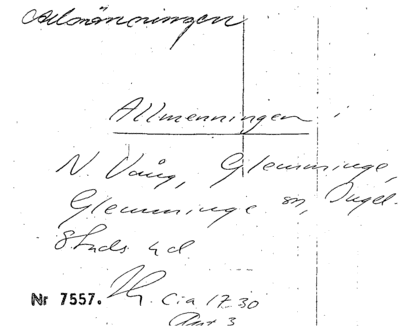 Allmänningen
Allmenningen i
N. Vång, Glemminge,
Glemminge sn, Ingel-
stads hd
Nr 7557. Ca 1730